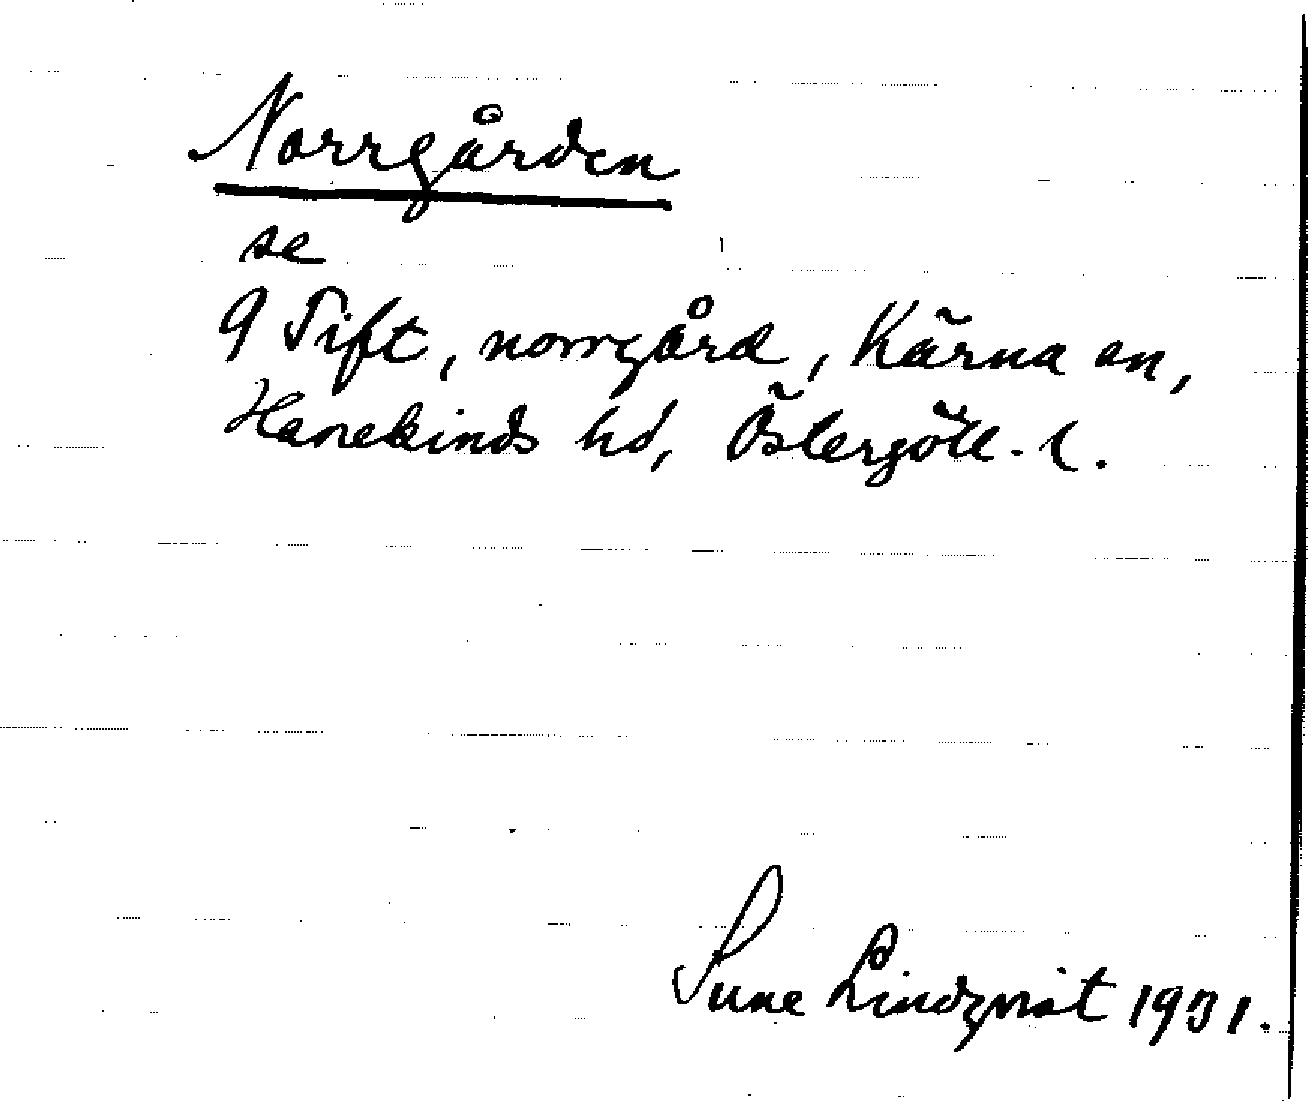 Norrgården
se
9 Tift, norrgård, Kärna sn,
Hanekinds hd, Östergötl. l.
Sune Lindqvist 1931.